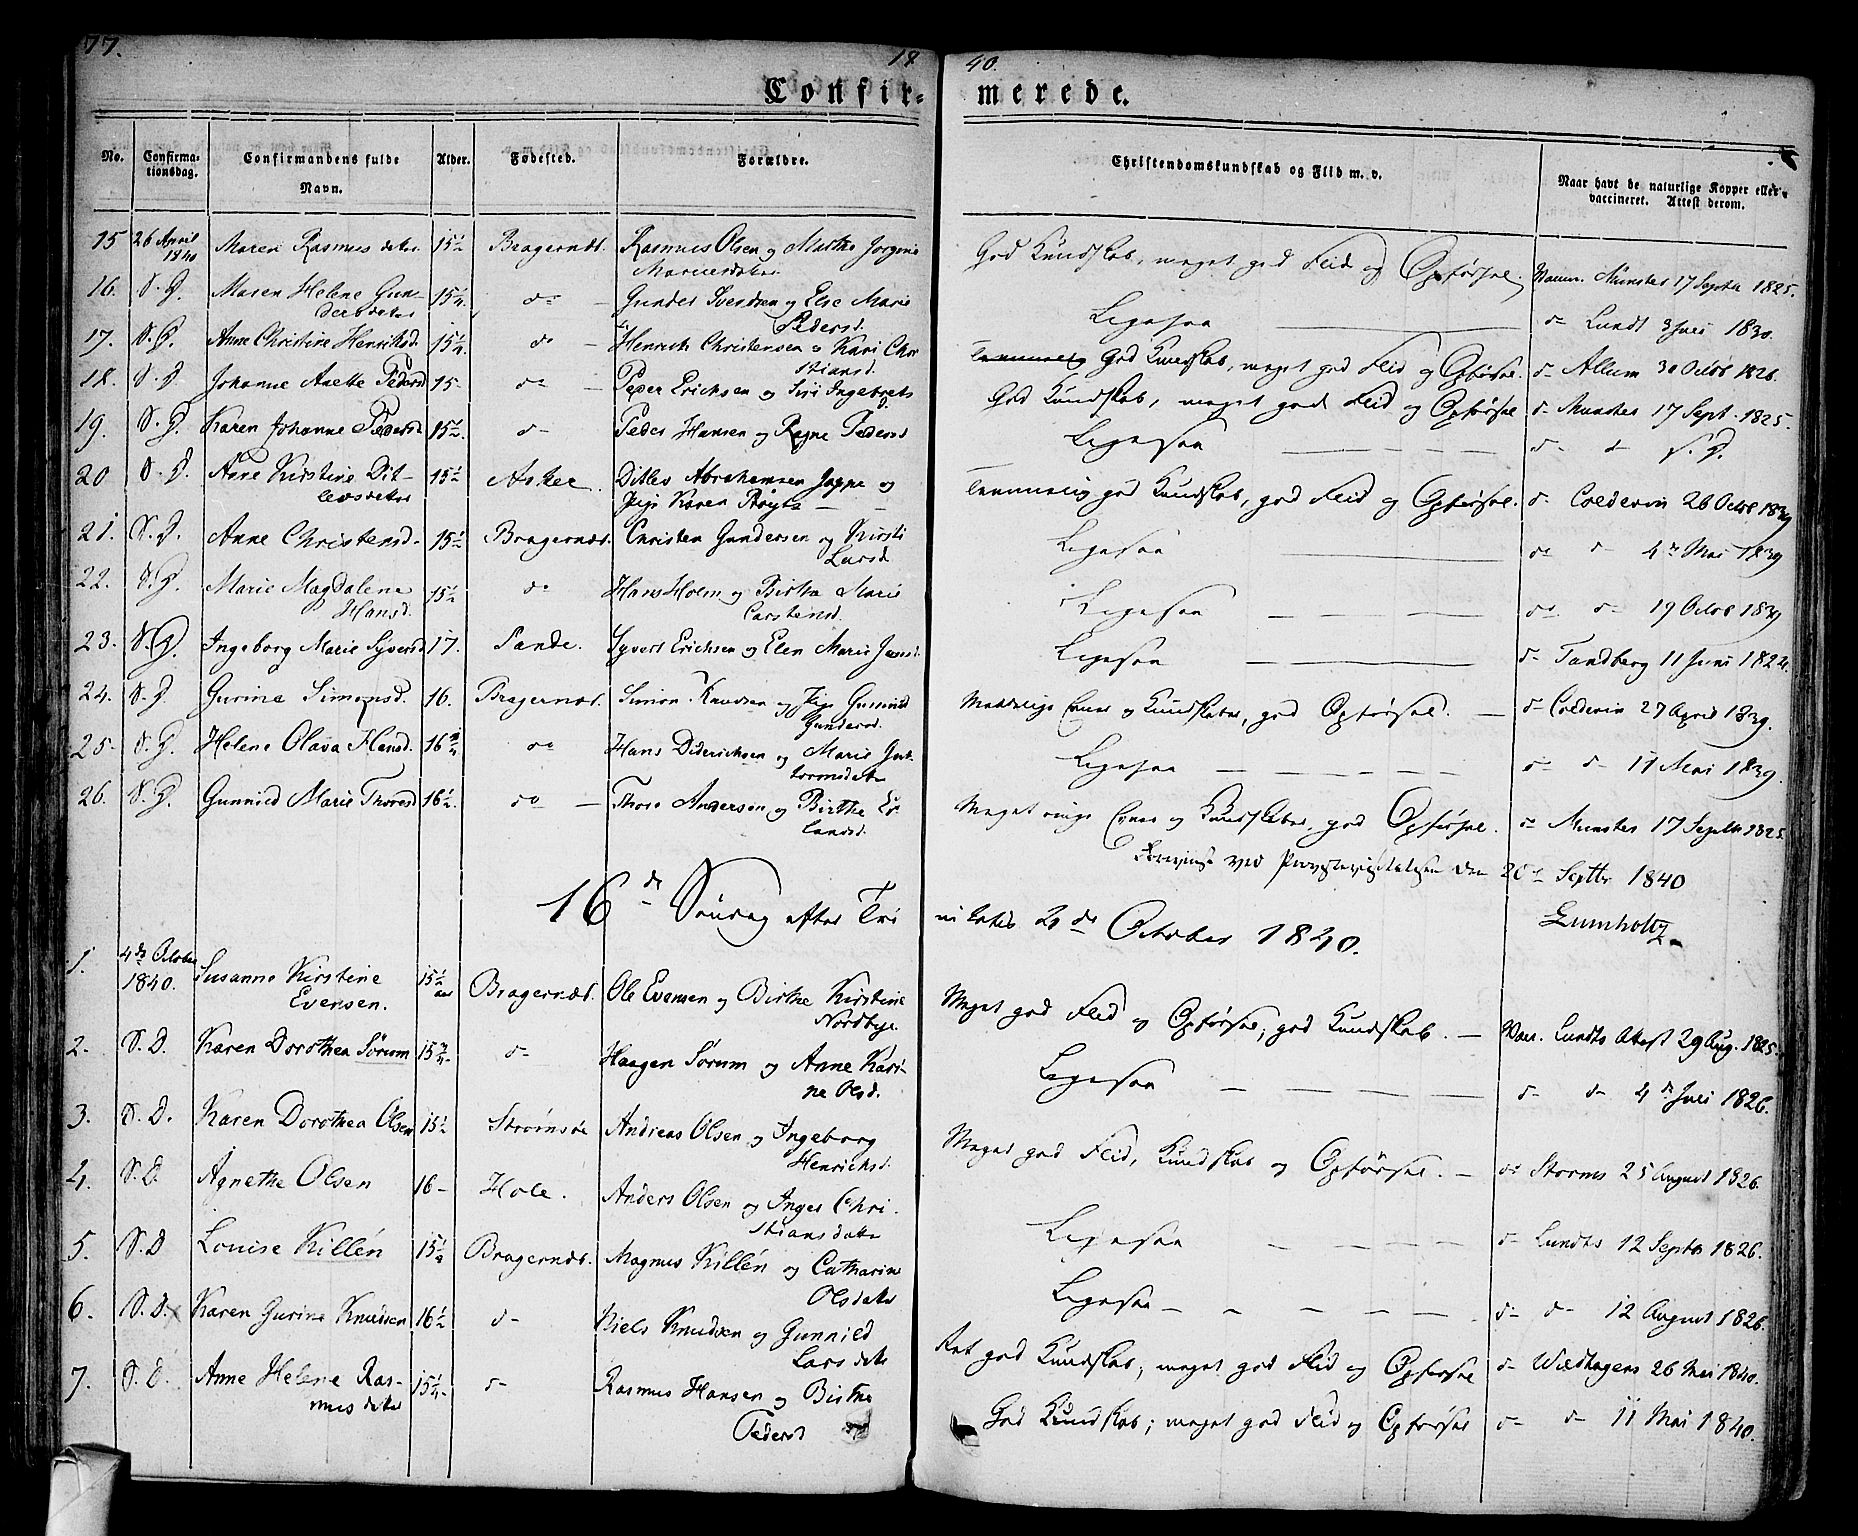 77.
18 40.
Confir- merede.
No. Confirma-tionsdag. Confirmandens fulde Navn. Alder. Fødested. Forældre. Christendomskundskab og Flid m. v. Naar havt de naturlige Kopper eller vaccineret. Attest derom.
15 26 April 1840 Maren Rasmusdatter 15½ Bragernæs. Rasmus Olsen og Marthe God Kundskab, meget god Flid og Opførsel. Vaccin. Münster 17 Septbr 1825.
16. S. D. Maren Helene Gun-
derdatter 15¼. do — Gunder Svendsen og Else Marie
Pedersd. Ligesaa — do Lundt 3 Juli 1830.
17. S. D. Anne Christine Henriksd. 15¼. do — Henrich Christensen og Kari Chri
stiansd. Temmelig God Kundskab, meget god Flid og Opførsel. do Allum 30 Octbr 1826.
18. S. D Johanne Anette Pedersd 15- do — Peder Erichsen og Siri Ingebrets
d. God Kundskab, meget god Flid og Opførsel do Munster 17 Sept. 1825.
19. S. D. Karen Johanne Pedersd 15½. do Peder Hansen og Regne Pedersd Ligesaa — — — do do S. D.
20 S. D. Ane Kirstine Dit-
levsdatter 15½ Asker. Ditlev Abrahamsen Jappe og
Pige Karen Temmelig god Kundskab, god Flid og Opførsel. do Colderin 26 Octbr 1839
21. S. D. Anne Christensd. 15½ Bragernæs. Christen Gundersen og Kirsti
Larsd Ligesaa do do 4de Mai 1839
22. S. D. Marie Magdalene
Hansd. 15½ do Hans Holm og Birthe Marie
Carstensd. Ligesaa — — — do do 19 Octbr 1839
23. S. D. Ingeborg Marie Syversd 17. Sande. Syvert Erichsen og Elen Marie Jensd. Ligesaa do Tandberg 11 Juni 1824.
24. S. D Gurine Simonsd. 16. Bragernæs. Simon Knudsen og Pige Gunnild
Gundersd. Maadelige Evner og Kundskaber, god Opførsel. — do Colderin 27 April 1839.
25- S. D. Helene Olava Hansd. 16¾ do Hans Diderichsen og Marie Gut-
tormsdatter Ligesaa — — — do do 11 Mai 1839.
26. S. D. Gunnild Marie Thoresd 16½. do — Thore Andersen og Birthe Er
landsd. Meget ringe Evner og Kundskaber, god Opførsel. do Munster 17 Septbr 1825.
ved Provstevisitatsen den 20de Septbr 1840
Lumholtz
16de Søndag efter Tri nitatis 4de October 1840.
1. 4de October
1840. Susanne Kirstine
Evensen. 15½ aar Bragernæs. Ole Evensen og Birthe Kirstine
Nordbye. Meget god Flid og Opførsel, god Kundskab. — Vacc. Lundts Attest 29 Aug. 1825.
2. S. D. Karen Dorothea Sørum 15¾. do Haagen Sørum og Anne Kari-
ne Olsd. Ligesaa — — — do do 4de Juli 1826.
3. S. D. Karen Dorothea Olsen 15½ Strømsøe Andreas Olsen og Ingeborg
Henrichsd. Meget god Flid, Kundskab og Opførsel. — do Storms 25 August 1826.
4. S. D. Agnethe Olsen 16- Hole. Anders Olsen og Inger Chri-
stiansdatter Ligesaa — — — do Lundts 12 Septbr 1826.
5. S. D Louise Killén 15½ Bragernæs. Magnus Killén og Catharine
Olsdatter Ligesaa — — — do do 12 August 1826.
6. S. D. Karen Gurine Knudsen 16½ do Niels Knudsen og Gunnild
Larsdatter Ret god Kundskab, meget god Flid og Opførsel do Wildhagens 26 Mai 1840.
7. S. D. Anne Helene Ras-
musdatter 15¼- do Rasmus Hansen og Birthe
Pedersd God Kundskab; meget god Flid og Opførsel do do 11 Mai 1840.